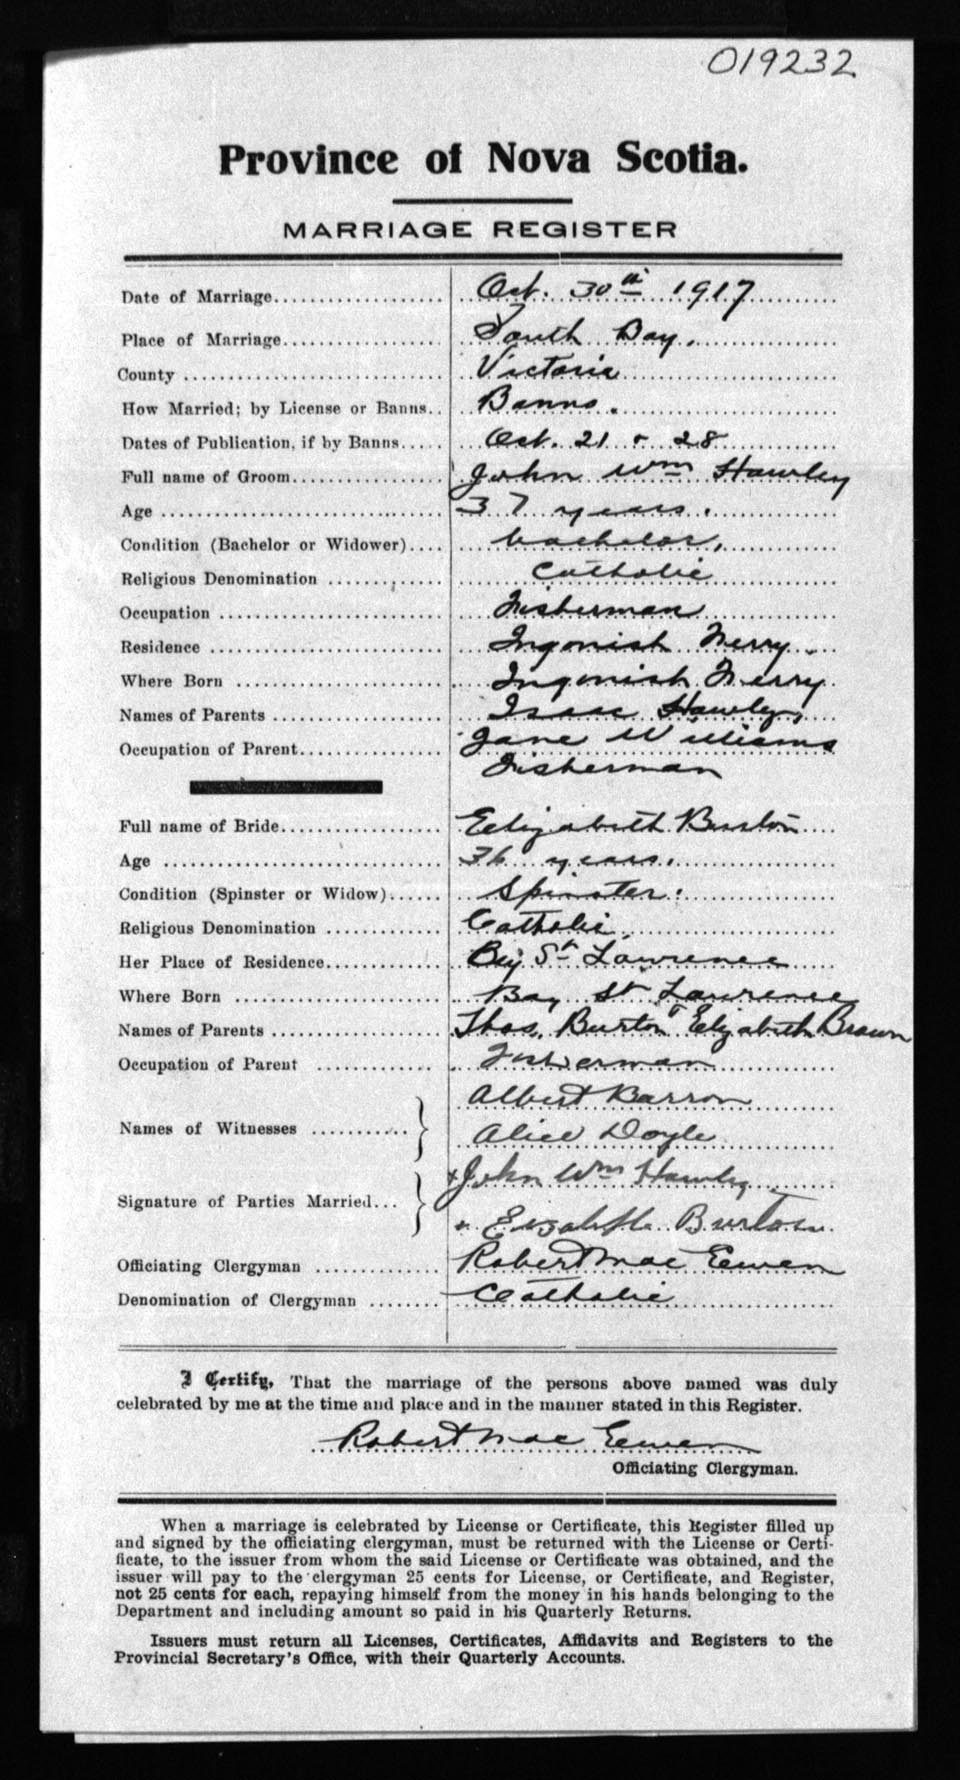 019232
Province of Nova Scotia.
MARRIAGE REGISTER
Date of Marriage Oct. 30th 1917
Place of Marriage South Bay.
County Victoria
How Married; by License or Banns Banns.
Dates of Publication, if by Banns Oct. 21 & 28
Full name of Groom John Wm Hawley
Age 37 years.
Condition (Bachelor or Widower) bachelor,
Religious Denomination Catholic
Occupation Fisherman
Residence Ingonish Ferry.
Where Born Ingonish Ferry
Names of Parents Isaac Hawley,
Occupation of Parent Jane Williams
Fisherman
Full name of Bride Elizabeth Burton
Age 36 years.
Condition (Spinster or Widow) Spinster.
Religious Denomination Catholic
Her Place of Residence St Lawrence
Where Born Bay St Lawrence
Names of Parents Thos. Burton & Elizabeth Brown
Occupation of Parent Fisherman
Names of Witnesses Albert Barron
Alice Doyle
Signature of Parties Married John Wm Hawley
Elizabeth Burton
Officiating Clergyman Robert Mac Eewen
Denomination of Clergyman Catholic
I Certify, That the marriage of the persons above named was duly
celebrated by me at the time and place and in the manner stated in this Register.
Robert Mac Eewen
Officiating Clergyman.
When a marriage is celebrated by License or Certificate, this Register filled up
and signed by the officiating clergyman, must be returned with the License or Certi-
ficate, to the issuer from whom the said License or Certificate was obtained, and the
issuer will pay to the clergyman 25 cents for License, or Certificate, and Register,
not 25 cents for each, repaying himself from the money in his hands belonging to the
Department and including amount so paid in his Quarterly Returns.
Issuers must return all Licenses, Certificates, Affidavits and Registers to the
Provincial Secretary's Office, with their Quarterly Accounts.